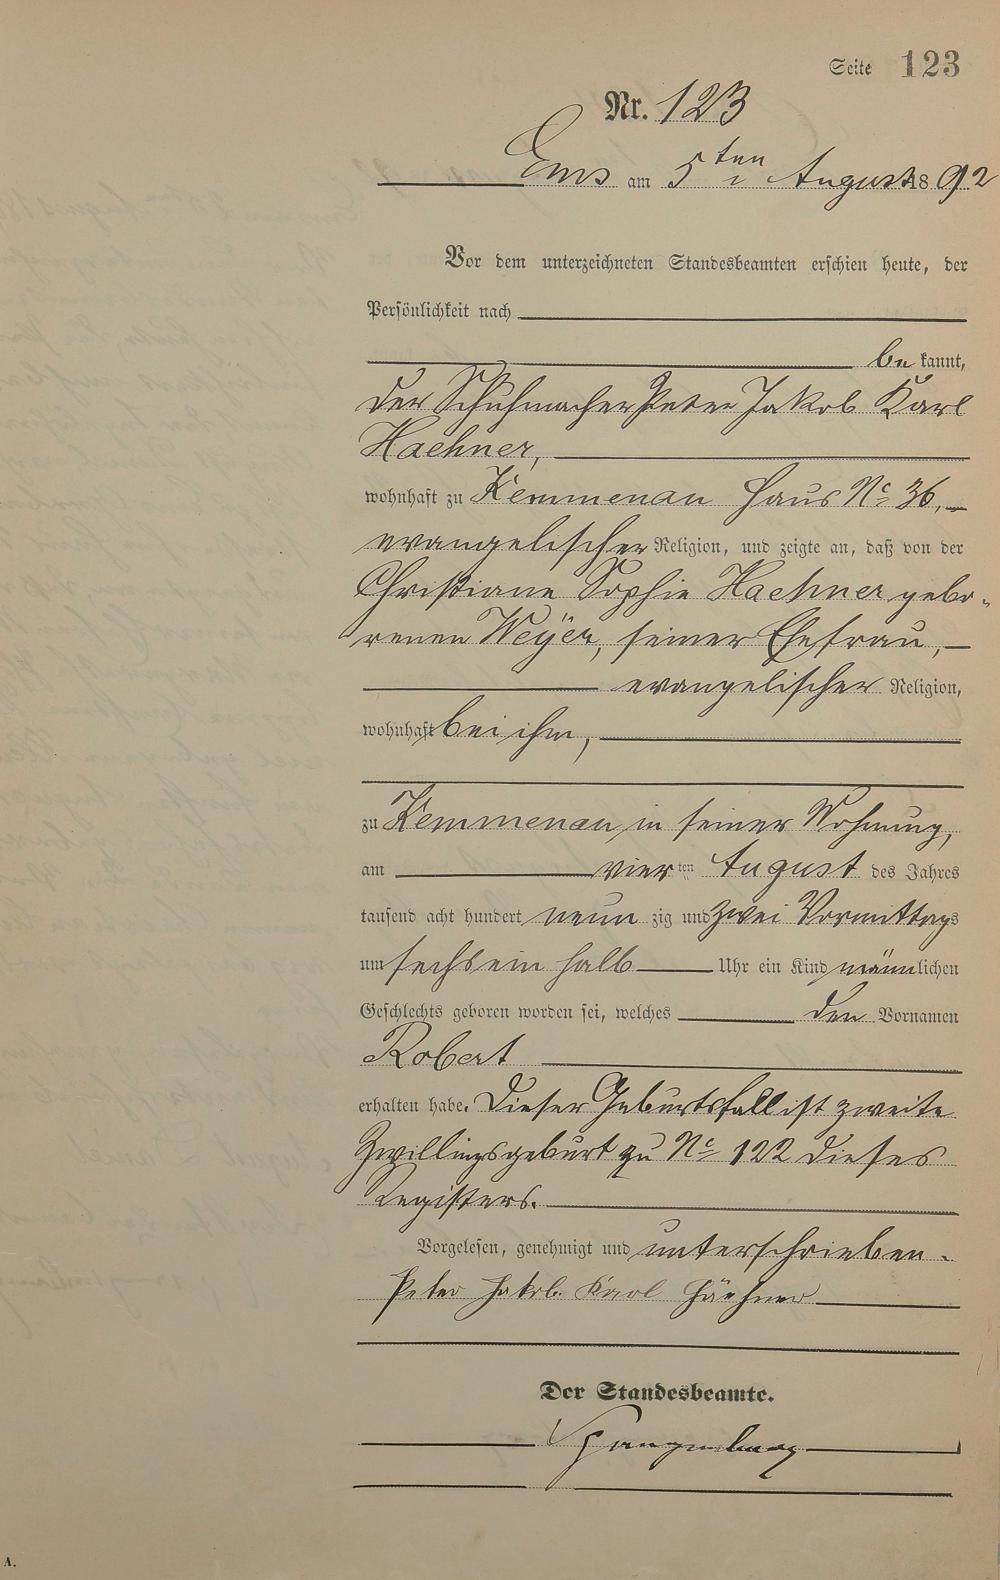 Seite 123
Nr. 123
Ems am 5ten August 1892
Vor dem unterzeichneten Standesbeamten erschien heute, der
Persönlichkeit nach
be kannt,
der Schuhmacher Peter Jakob Karl
Haehner,
wohnhaft zu Kemmenau Haus No 36,
evangelischer Religion, und zeigte an, daß von der
Christiane Sophie Haehner gebo-
renen Weyer, seiner Ehefrau,
evangelischer Religion,
wohnhaft bei ihm,
zu Kemmenau, in seiner Wohnung,
am vier ten August des Jahres
tausend acht hundert neun zig und zwei Vormittags
um sechs ein halb Uhr ein Kind männlichen
Geschlechts geboren worden sei, welches den Vornamen
Robert
erhalten habe. Dieser Geburtsfall ist zweite
Zwillingsgeburt zu No 122 dieses
Registers.
Vorgelesen, genehmigt und unterschrieben.
Peter Jakob Karl Häehner
Der Standesbeamte.
Spangenberg
A.